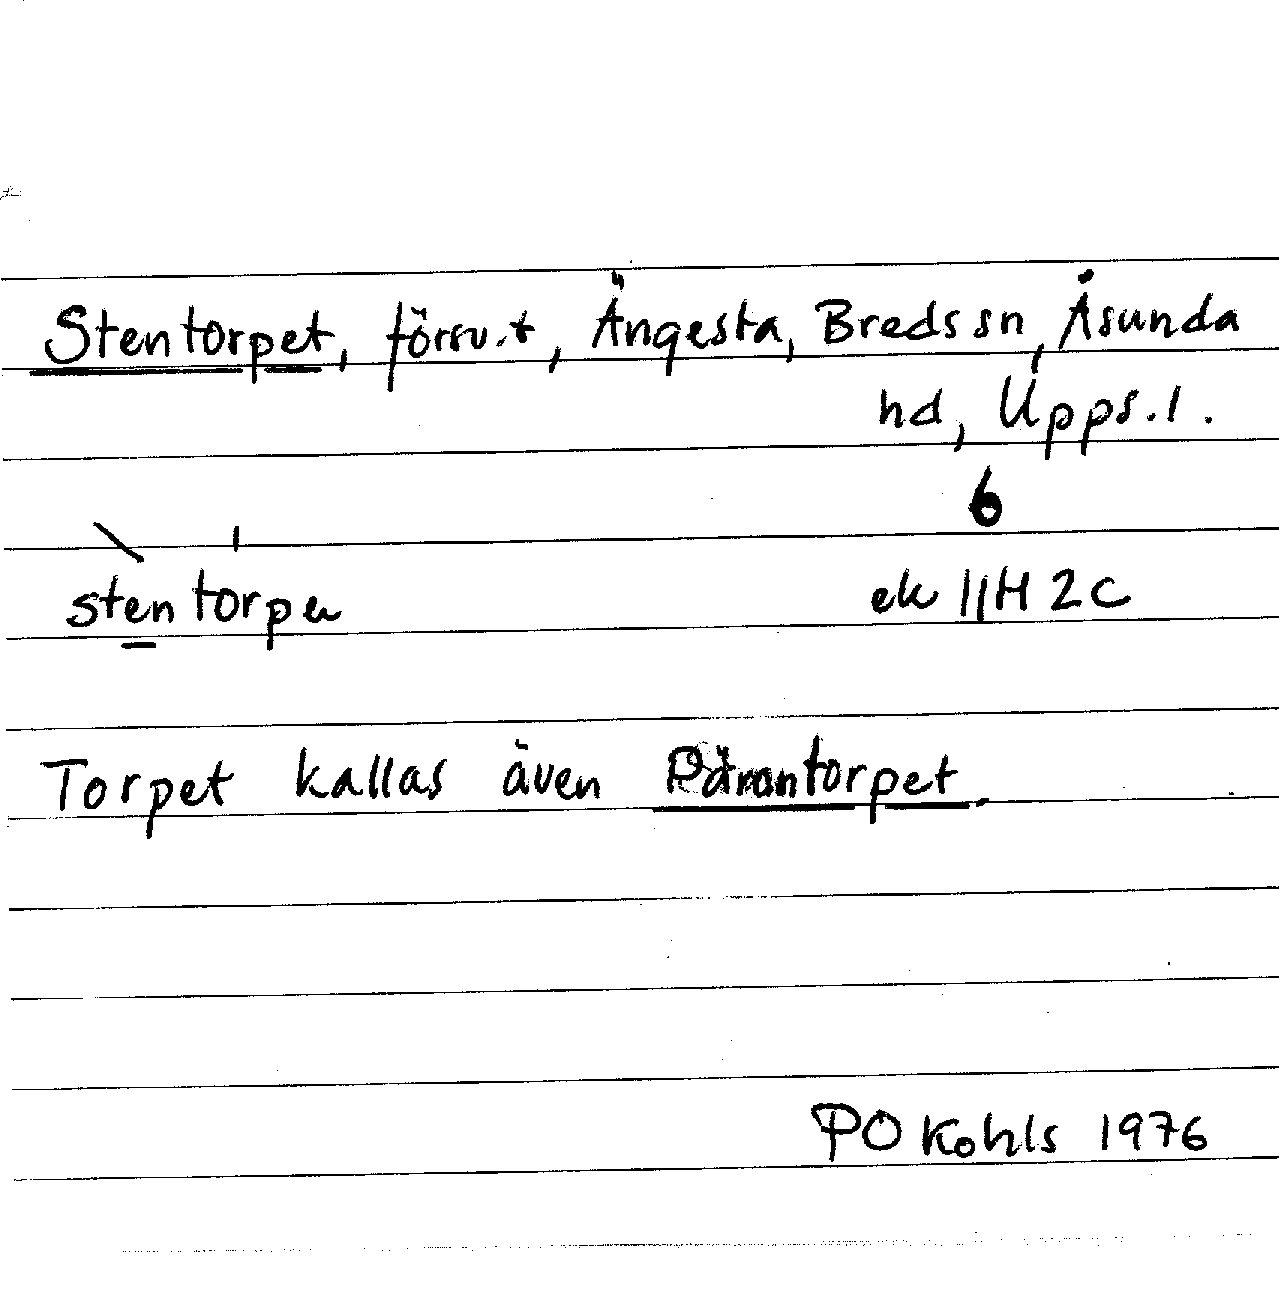 Stentorpet, försv.t, Ängesta, Bredssn, Åsunda
hd, Upps.l.
6
stentorpe ek 11H 2C
Torpet kallas även Pärontorpet.
PO Kohls 1976